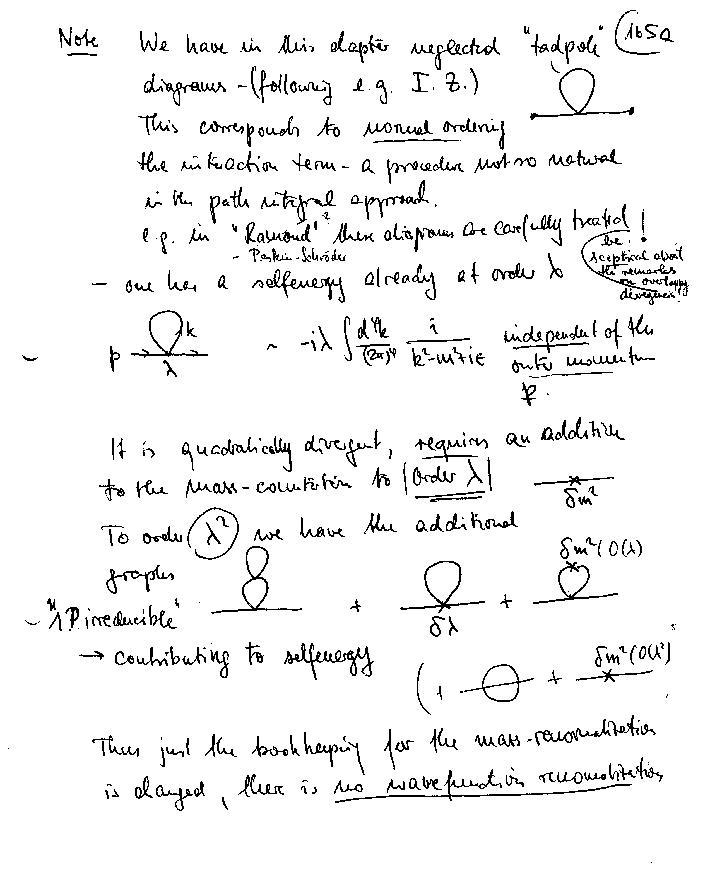 Note We have in this chapter neglected "tadpole" 165a
diagrams - (following e.g. I. Z.)
This corresponds to normal ordering
the interaction term - a procedure not so natural
in the path integral approach.
e.g. in "Ramond" these diagrams are carefully treated!
- Peskin-Schröder
(be sceptical about
the remarks
on overlapping
divergencies)
- one has a selfenergy already at order λ
p k λ ~ -iλ ∫ d⁴k/(2π)⁴ i/(k²-m²+iε) independent of the
outer momentum
p.
It is quadratically divergent, requires an addition
to the mass-counterterm to |Order λ|
δm²
To order λ² we have the additional
graphs
δm² (O(λ)
+ δλ +
- "1P irreducible"
→ contributing to selfenergy
(+ + δm² (O(λ²)
Thus just the bookkeeping for the mass-renormalization
is changed, there is no wavefunction renormalization